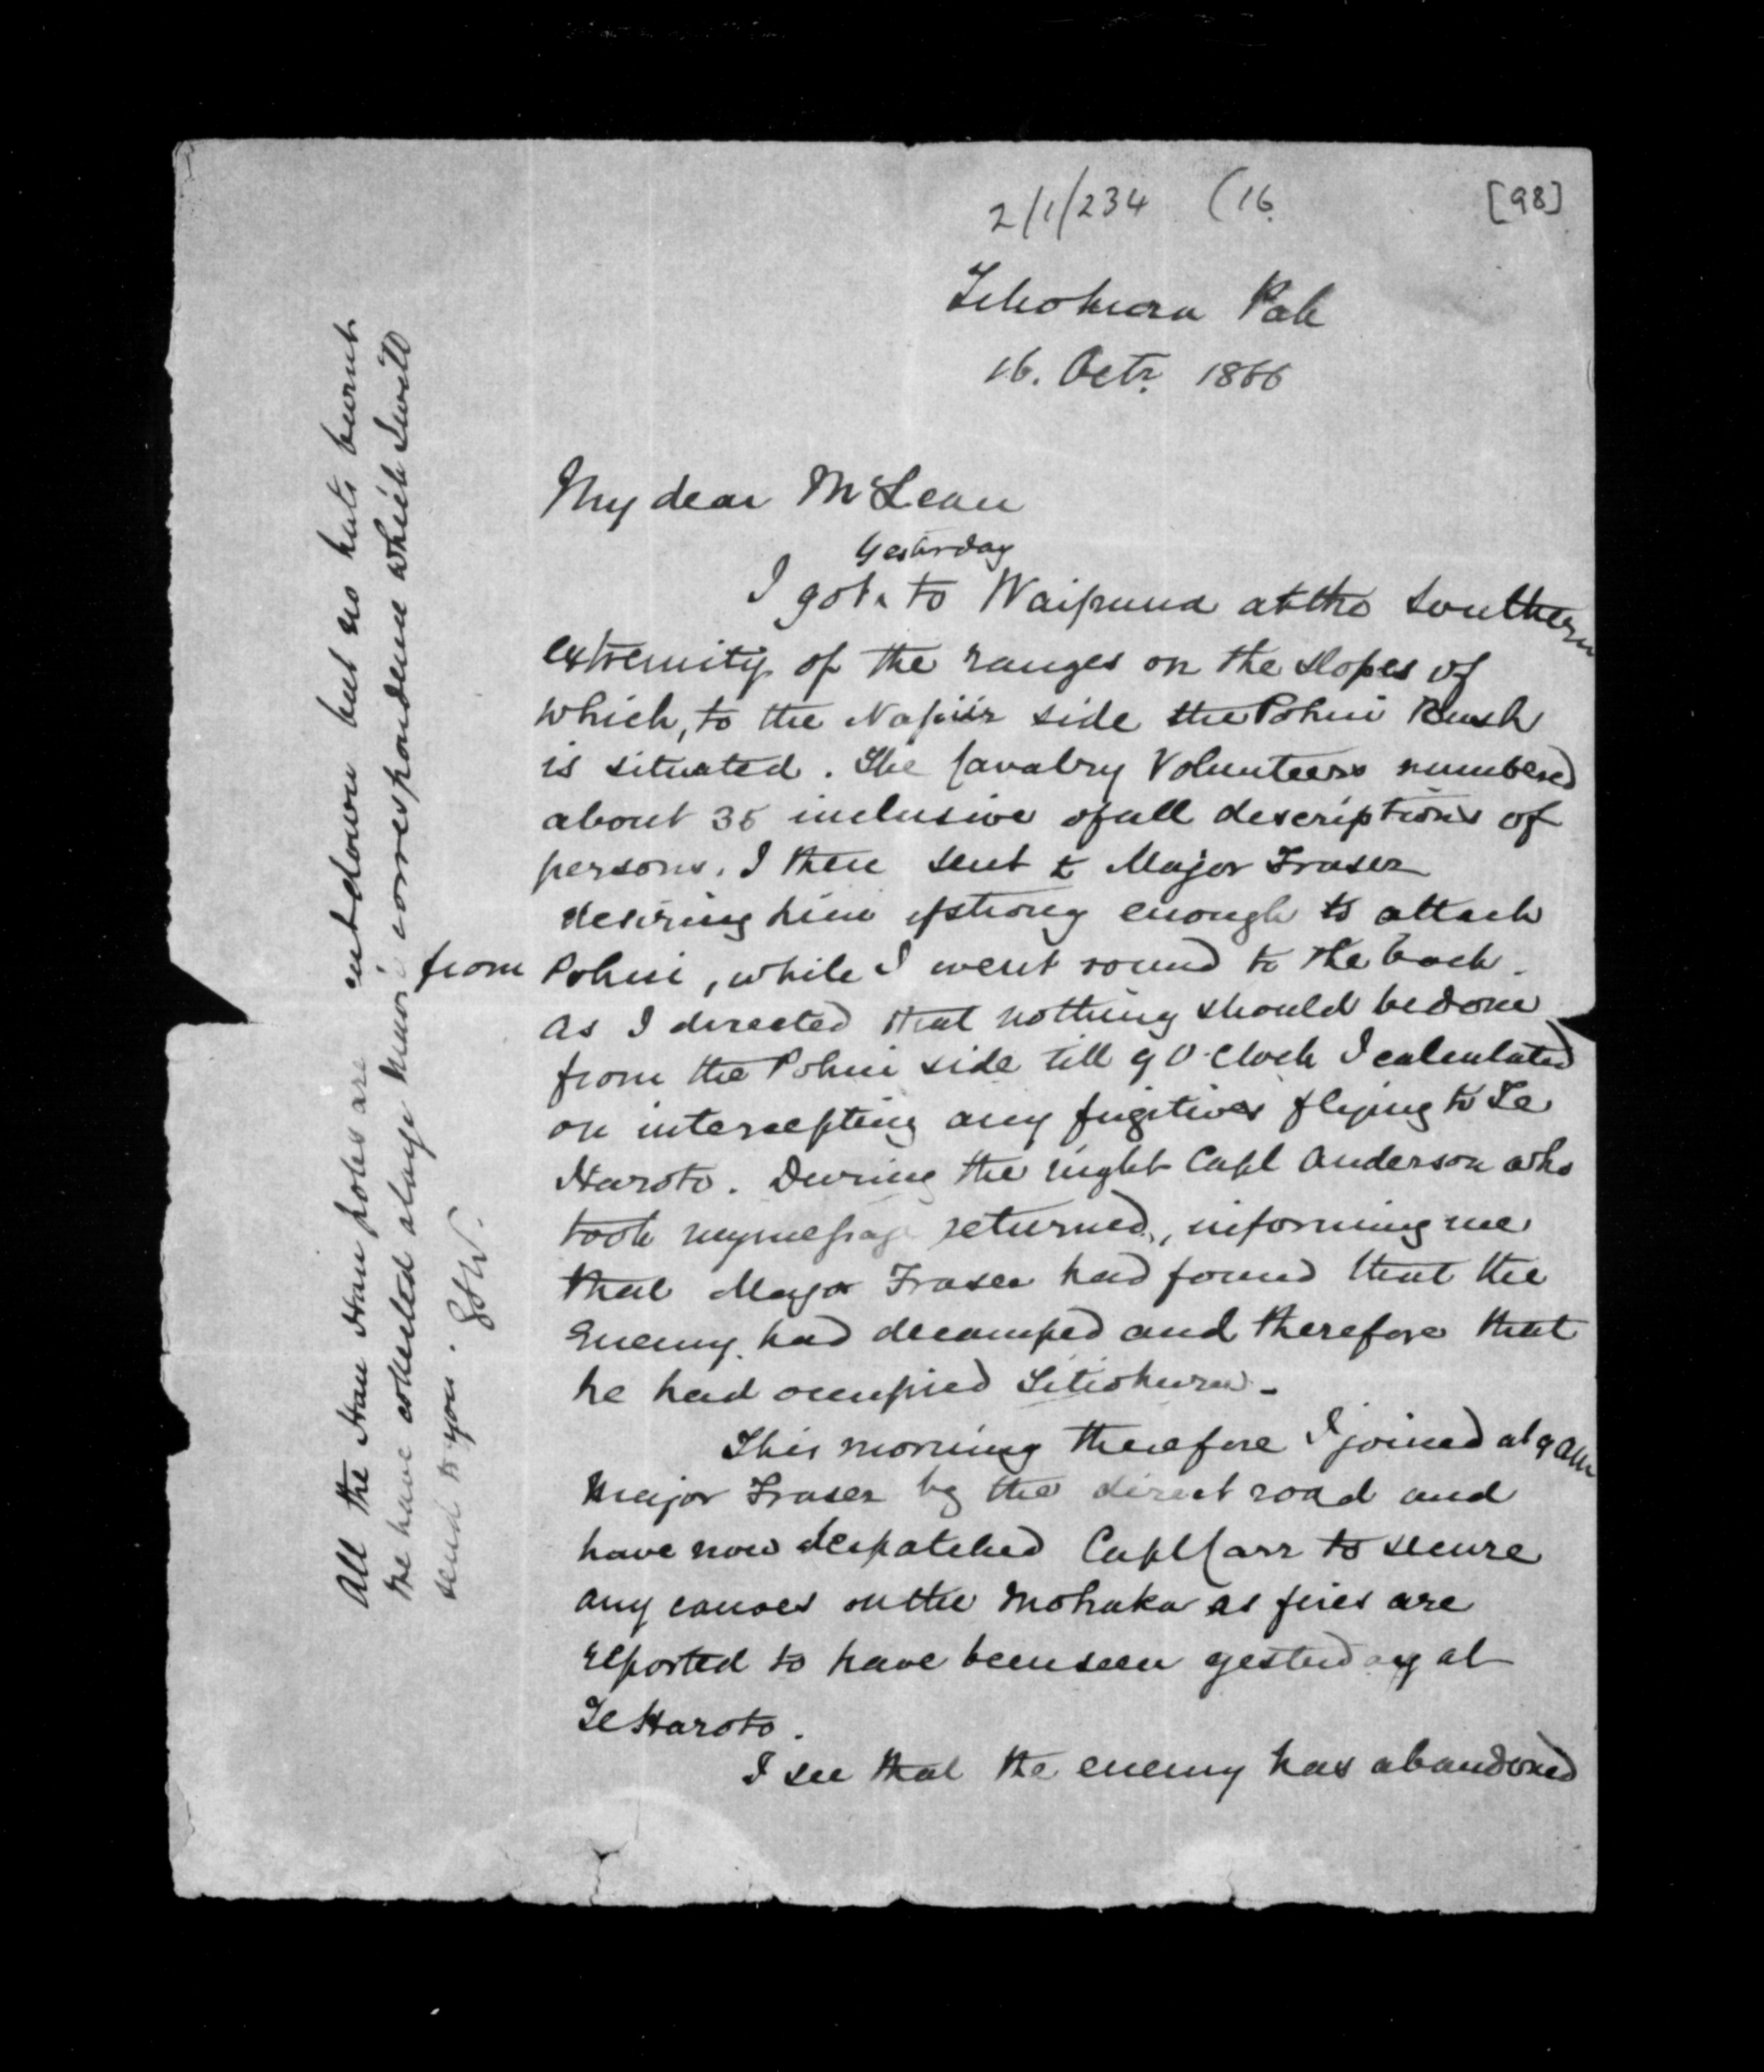 2/1/234 (16.
[98]
Tehokura Pah
16. Octr. 1866
My dear McLean
yesterday
I got to Waipuna at the Southern
extremity of the ranges on the slopes of
which, to the Napier side the Pohui Bush
is situated. The Cavalry Volunteers numbered
about 35 inclusive of all descriptions of
persons. I then sent to Major Fraser
desiring him if strong enough to attack
from Pohui, while I went round to the back.
As I directed that nothing should be done
from the Pohui side till 9 O'Clock I calculated
on intercepting any fugitives flying to Te
Haroto. During the night Capt Anderson who
took my message returned, informing me
that Major Fraser had found that the
Enemy had decamped and therefore that
he had occupied Titiokura -
This morning therefore I joined at 9 am
Major Fraser by the direct road and
have now despatched Capt Carr to secure
any canoes on the Mohaka as fires are
reported to have been seen yesterday at
Te Haroto.
I see that the enemy has abandoned
All the Hau Hau poles are cut down but no huts burnt
We have collected a large Maori correspondence which I will
send to you.